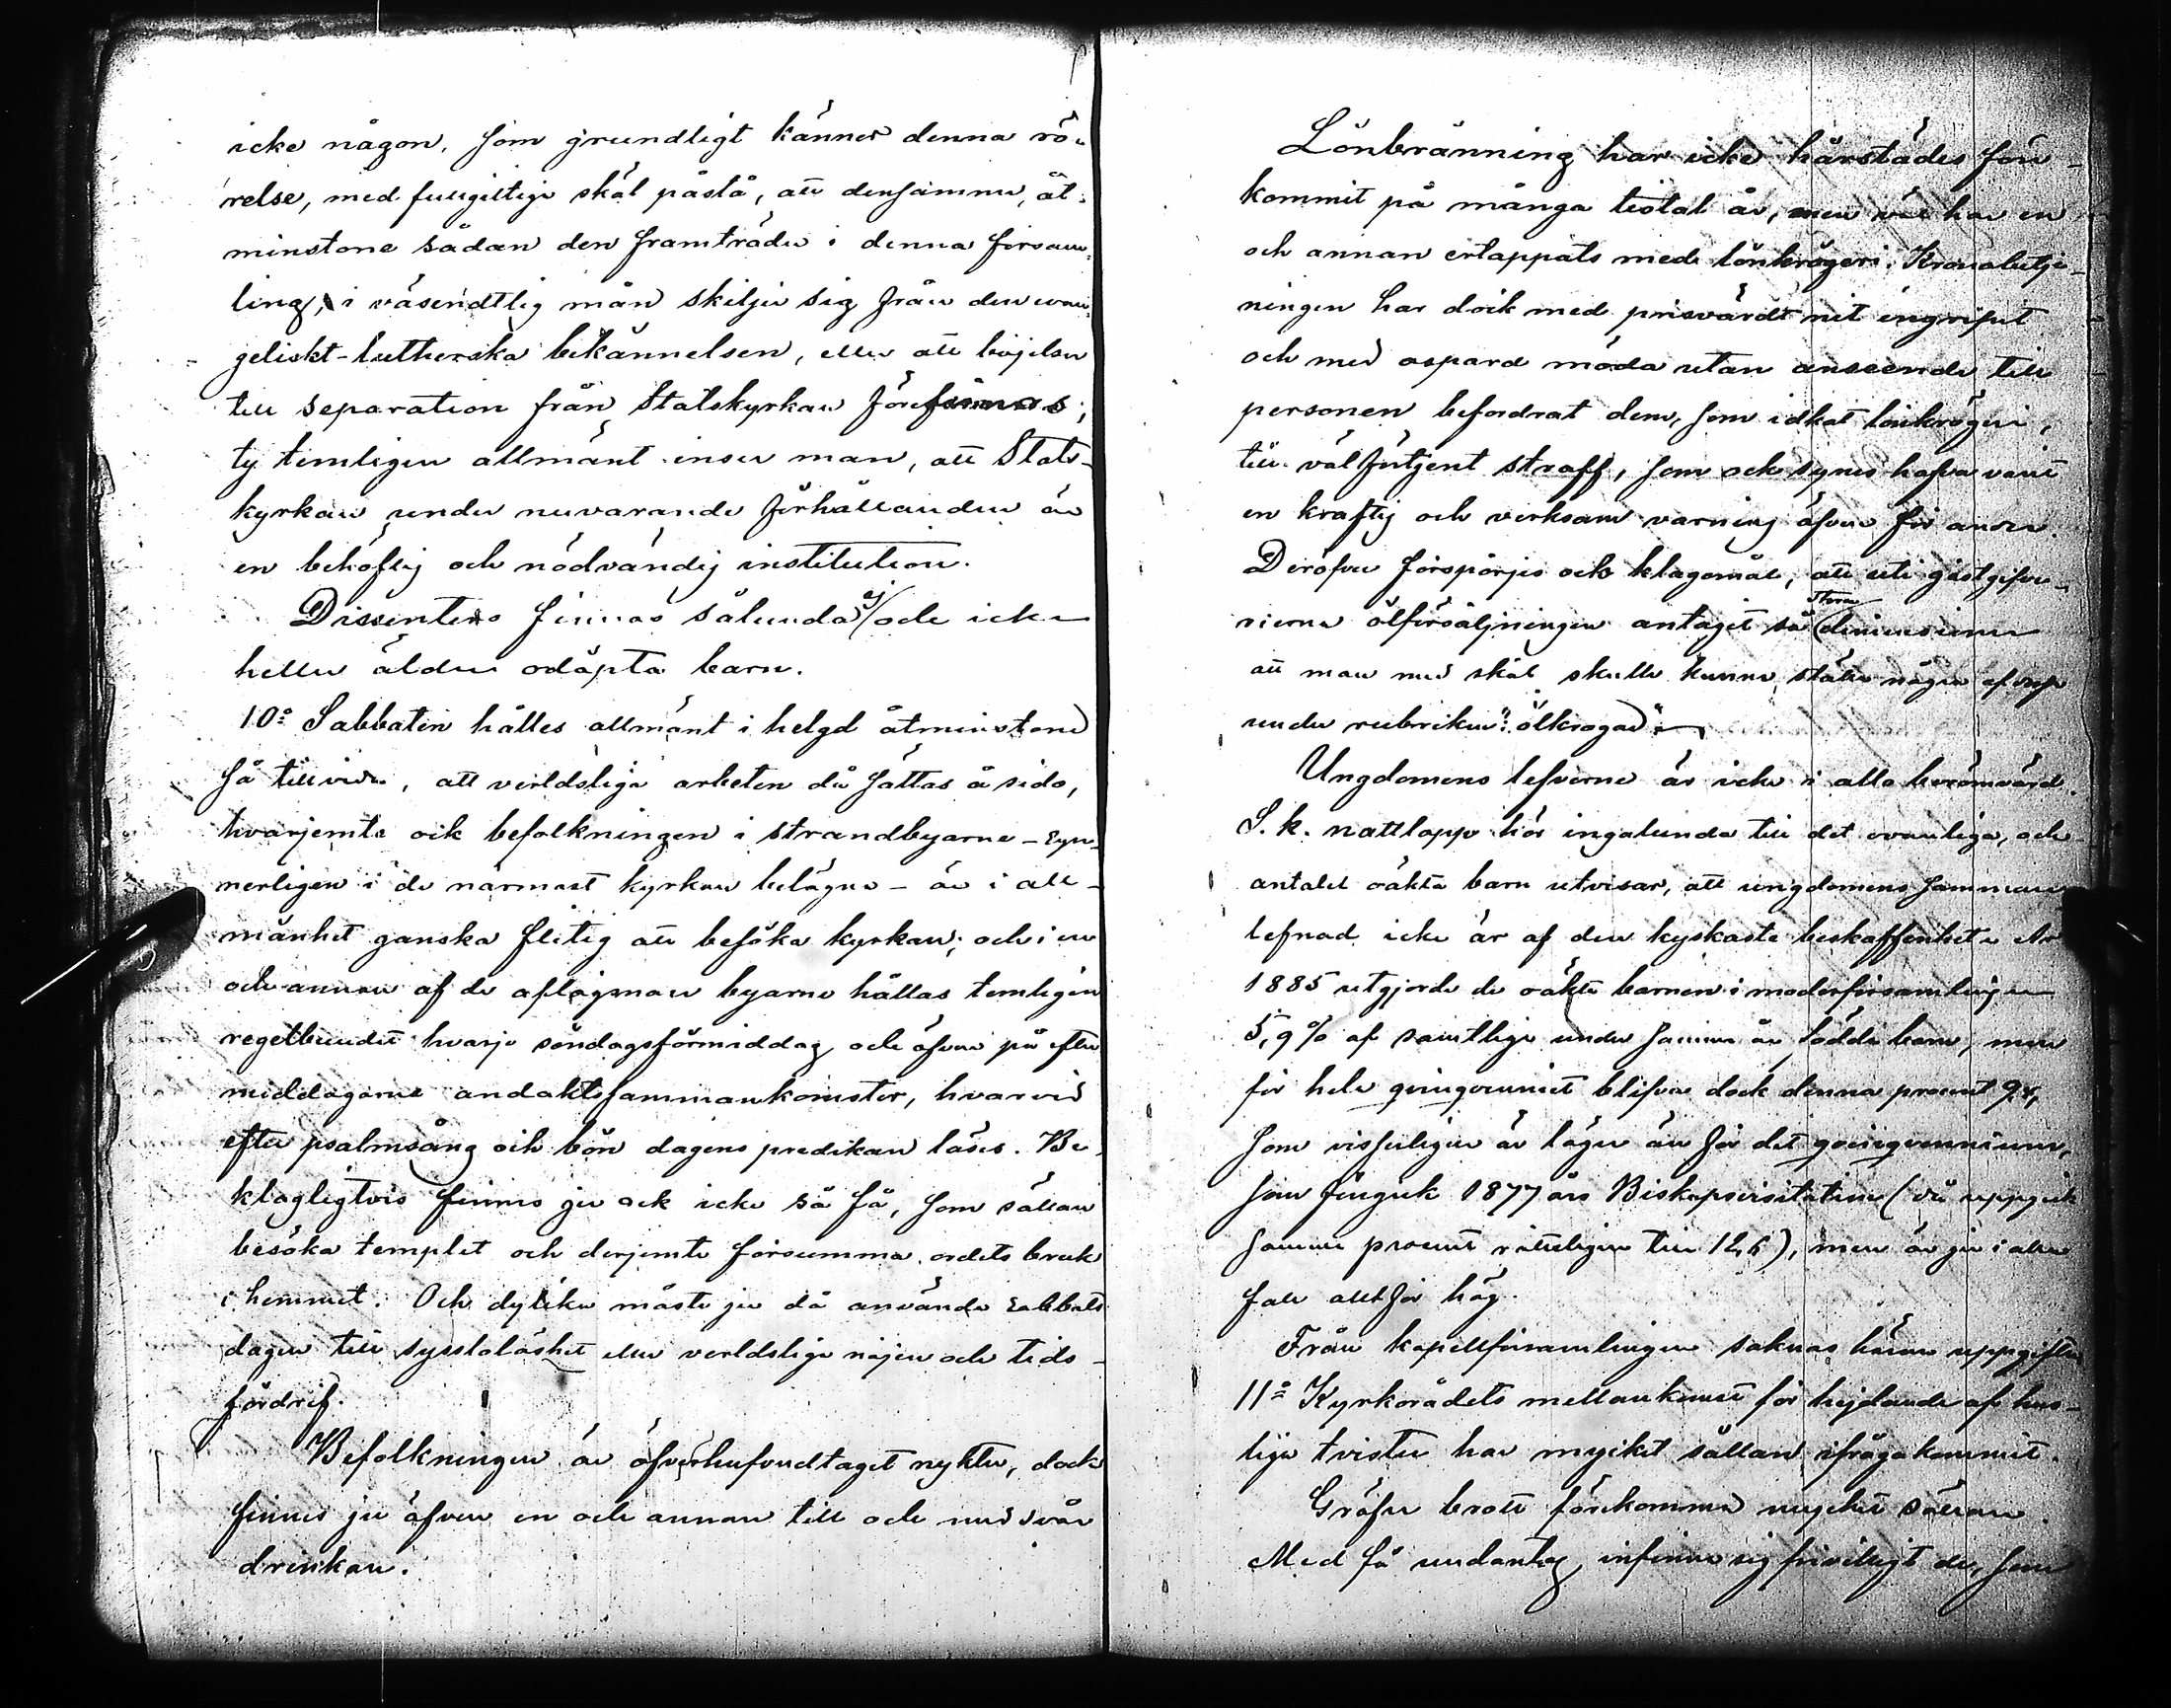 icke någon, som grundligt känner denna rö-
relse, med fullgiltiga skäl påstå, att densamma, åt-
minstone sådan den framträder i denna försam-
ling, i väsendtlig mån skiljer sig från den evan-
geliskt-lutherska bekännelsen, eller att böjelser
till separation från Statskyrkan förefinnas;
ty temligen allmänt inser man, att Stats-
kyrkan under nuvarande förhållanden är
en behöflig och nödvändig institution.
Dissenters finnas sålunda ej och icke
heller äldre odöpta barn.
10:o Sabbaten hålles allmänt i helgd åtminstone
så tillvida, att verldsliga arbeten då sättas å sido,
hvarjemte ock befolkningen i strandbyarne - syn-
nerligen i de närmast kyrkan belägna - är i all-
mänhet ganska flitig att besöka kyrkan; och i en
och annan af de aflägsnare byarne hållas temligen
regelbundet hvarje söndagsförmiddag och äfven på efter
middagarne andaktssammankomster, hvarvid
efter psalmsång och bön dagens predikan läses. Be-
klagligtvis finnes ju ock icke så få, som sällan
besöka templet och derjemte försumma ordets bruk
i hemmet. Och dylika måste ju då använda Sabbats
dagen till sysslolöshet eller verldsliga nöjen och tids-
fördrif.
Befolkningen är öfverhufvudtaget nykter, dock
finnes ju äfven en och annan till och med svår
drinkare.
Lönbränning har icke härstädes före-
kommit på många tiotal år, men väl har en
och annan ertappats med lönkrögeri. Kronobetje-
ningen har dock med prisvärdt nit ingripit
och med ospard möda utan anseende till
personen befordrat dem, som idkat lönkrögeri,
till välförtjent straff, som ock synes hafva varit
en kraftig och verksam varning äfven för andra.
Deröfver förspörjes ock klagomål, att uti gästgifve-
rierna ölförsäljningen antagit så stora dimensioner
att man med skäl skulle kunna ställa några af dessa
under rubriken: "ölkrogar".
Ungdomens lefverne är icke i allo berömvärd.
S. k. nattlopp hör ingalunda till det ovanliga, och
antalet oäkta barn utvisar, att ungdomens samman
lefnad icke är af den kyskaste beskaffenhet. År
1885 utgjorde de oäkta barnen i moderförsamlingen
5,9 % af samtliga under samma år födda barn, men
för hela qvinqvenniet blifver dock denna procent 9,8,
som visserligen är lägre än för det qvinqvennium,
som föregick 1877 års Biskopsvisitation (då uppgick
samma procent nätteligen till 12,6), men är ju i alla
fall alltför hög.
Från kapellförsamlingen saknas härom uppgifter
11:o Kyrkorådets mellankomst för hejdande af hus-
liga tvister har mycket sällan ifrågakommit.
Gröfre brott förekomma mycket sällan.
Med få undantag infinna sig frivilligt de, som